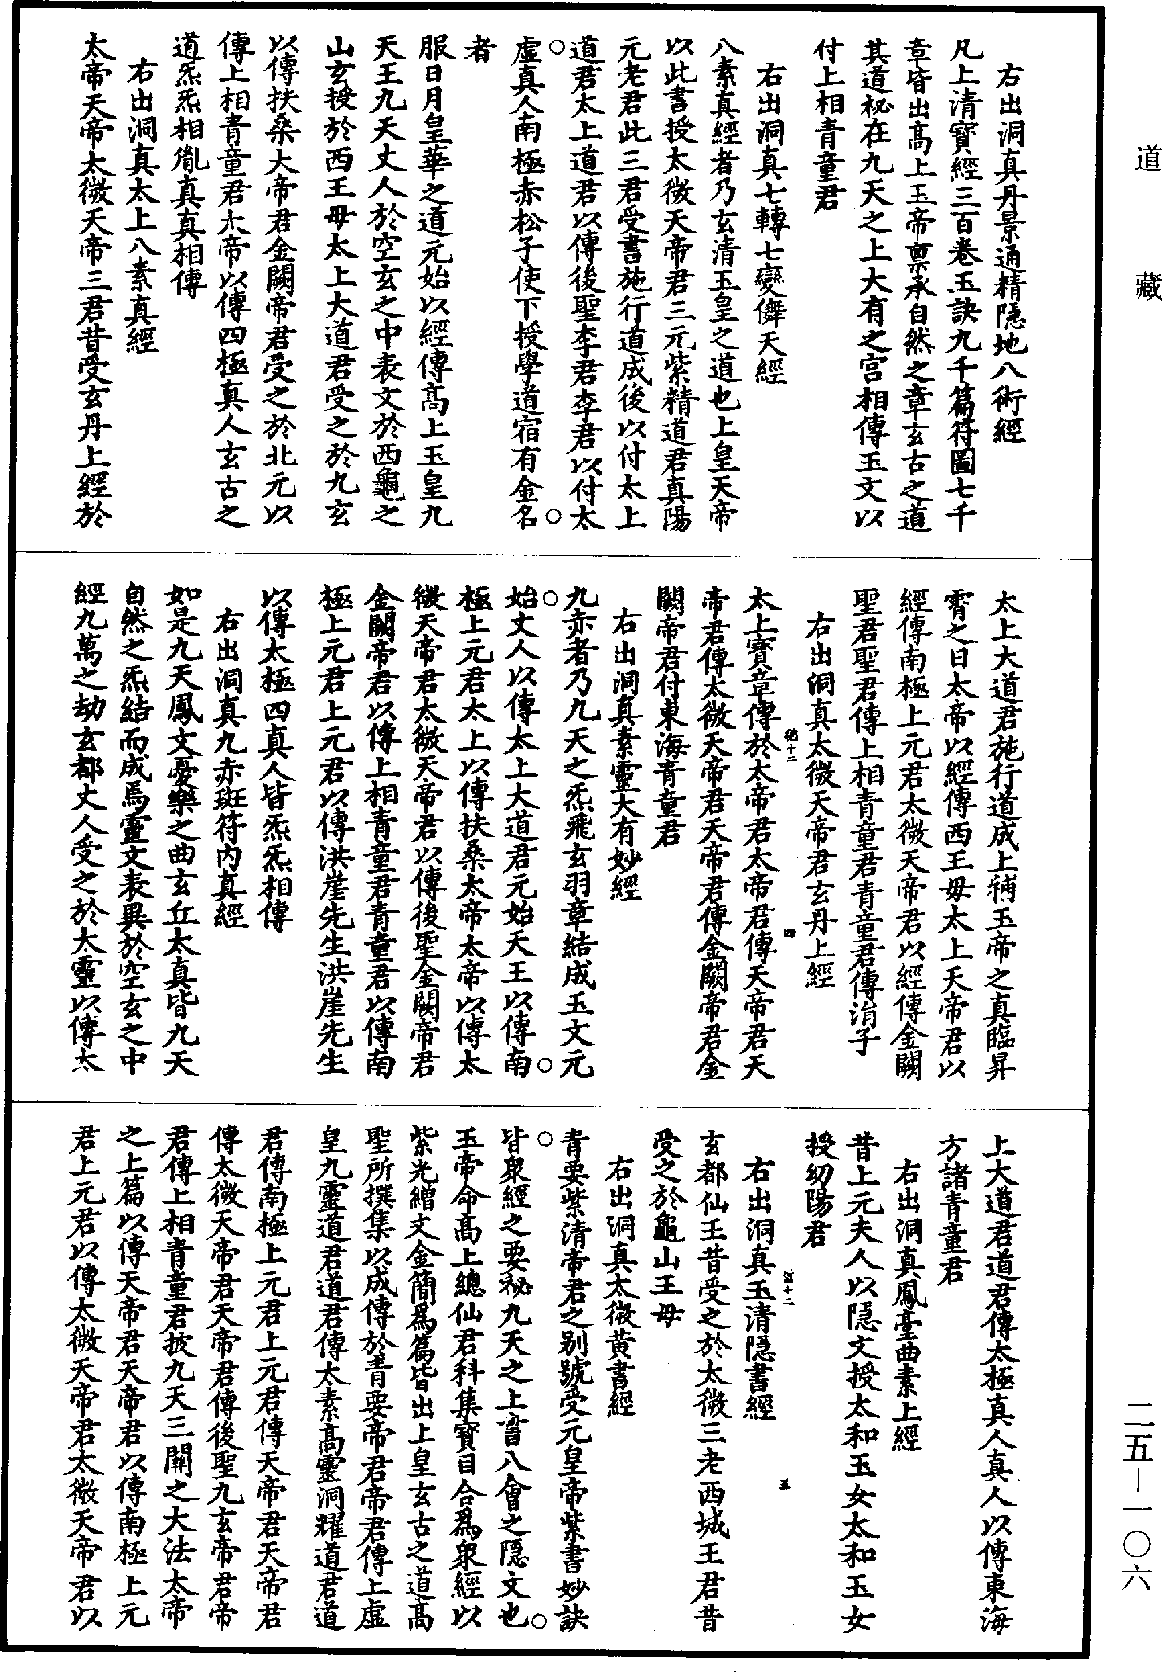 道藏
右出洞真丹景通精隱地八術經
凡上清寶經三百卷玉訣九千篇符圖七千
章皆出高上玉帝稟承自然之章玄古之道
其道祕在九天之上大有之宮相傳玉文以
付上相青童君
右出洞真七轉七變儛天經
八素真經者乃玄清玉皇之道也上皇天帝
以此書授太微天帝君三元紫精道君真陽
元老君此三君受書施行道成後以付太上
道君太上道君以傳後聖李君李君以付太
虛真人南極赤松子使下授學道宿有金名
者
服日月皇華之道元始以經傳高上玉皇九
天王九天丈人於空玄之中表文於西龜之
山玄授於西王母太上大道君受之於九玄
以傳扶桑大帝君金闕帝君受之於北元以
傳上相青童君太帝以傳四極真人玄古之
道炁炁相胤真真相傳
右出洞真太上八素真經
太帝天帝太微天帝三君昔受玄丹上經於
太上大道君施行道成上補玉帝之真臨昇
霄之日太帝以經傳西王母太上天帝君以
經傳南極上元君太微天帝君以經傳金闕
聖君聖君傳上相青童君青童君傳涓子
右出洞真太微天帝君玄丹上經
太上寶章傳於太帝君太帝君傳天帝君天
帝君傳太微天帝君天帝君傳金闕帝君金
闕帝君付東海青童君
右出洞真素靈大有妙經
九赤者乃九天之炁飛玄羽章結成玉文元
始丈人以傳太上大道君元始天王以傳南
極上元君太上以傳扶桑太帝太帝以傳太
微天帝君太微天帝君以傳後聖金闕帝君
金闕帝君以傳上相青童君青童君以傳南
極上元君上元君以傳洪崖先生洪崖先生
以傳太極四真人皆炁炁相傳
右出洞真九赤班符內真經
如是九天鳳文憂樂之曲玄丘太真皆九天
自然之炁結而成焉靈文表異於空玄之中
經九萬之劫玄都丈人受之於太靈以傳太
上大道君道君傳太極真人真人以傳東海
方諸青童君
右出洞真鳳臺曲素上經
昔上元夫人以隱文授太和玉女太和玉女
授幼陽君
右出洞真玉清隱書經
玄都仙王昔受之於太微三老西城王君昔
受之於龜山王母
右出洞真太微黃書經
青要紫清帝君之別號受元皇帝紫書妙訣
皆眾經之要祕九天之上音八會之隱文也
玉帝命高上總仙君科集寶目合為眾經以
紫光繒文金簡為篇皆出上皇玄古之道高
聖所撰集以成傳於青要帝君帝君傳上虛
皇九靈道君道君傳太素高靈洞耀道君道
君傳南極上元君上元君傳天帝君天帝君
傳太微天帝君天帝君傳後聖九玄帝君帝
君傳上相青童君披九天三關之大法太帝
之上篇以傳天帝君天帝君以傳南極上元
君上元君以傳太微天帝君太微天帝君以
二五—一〇六